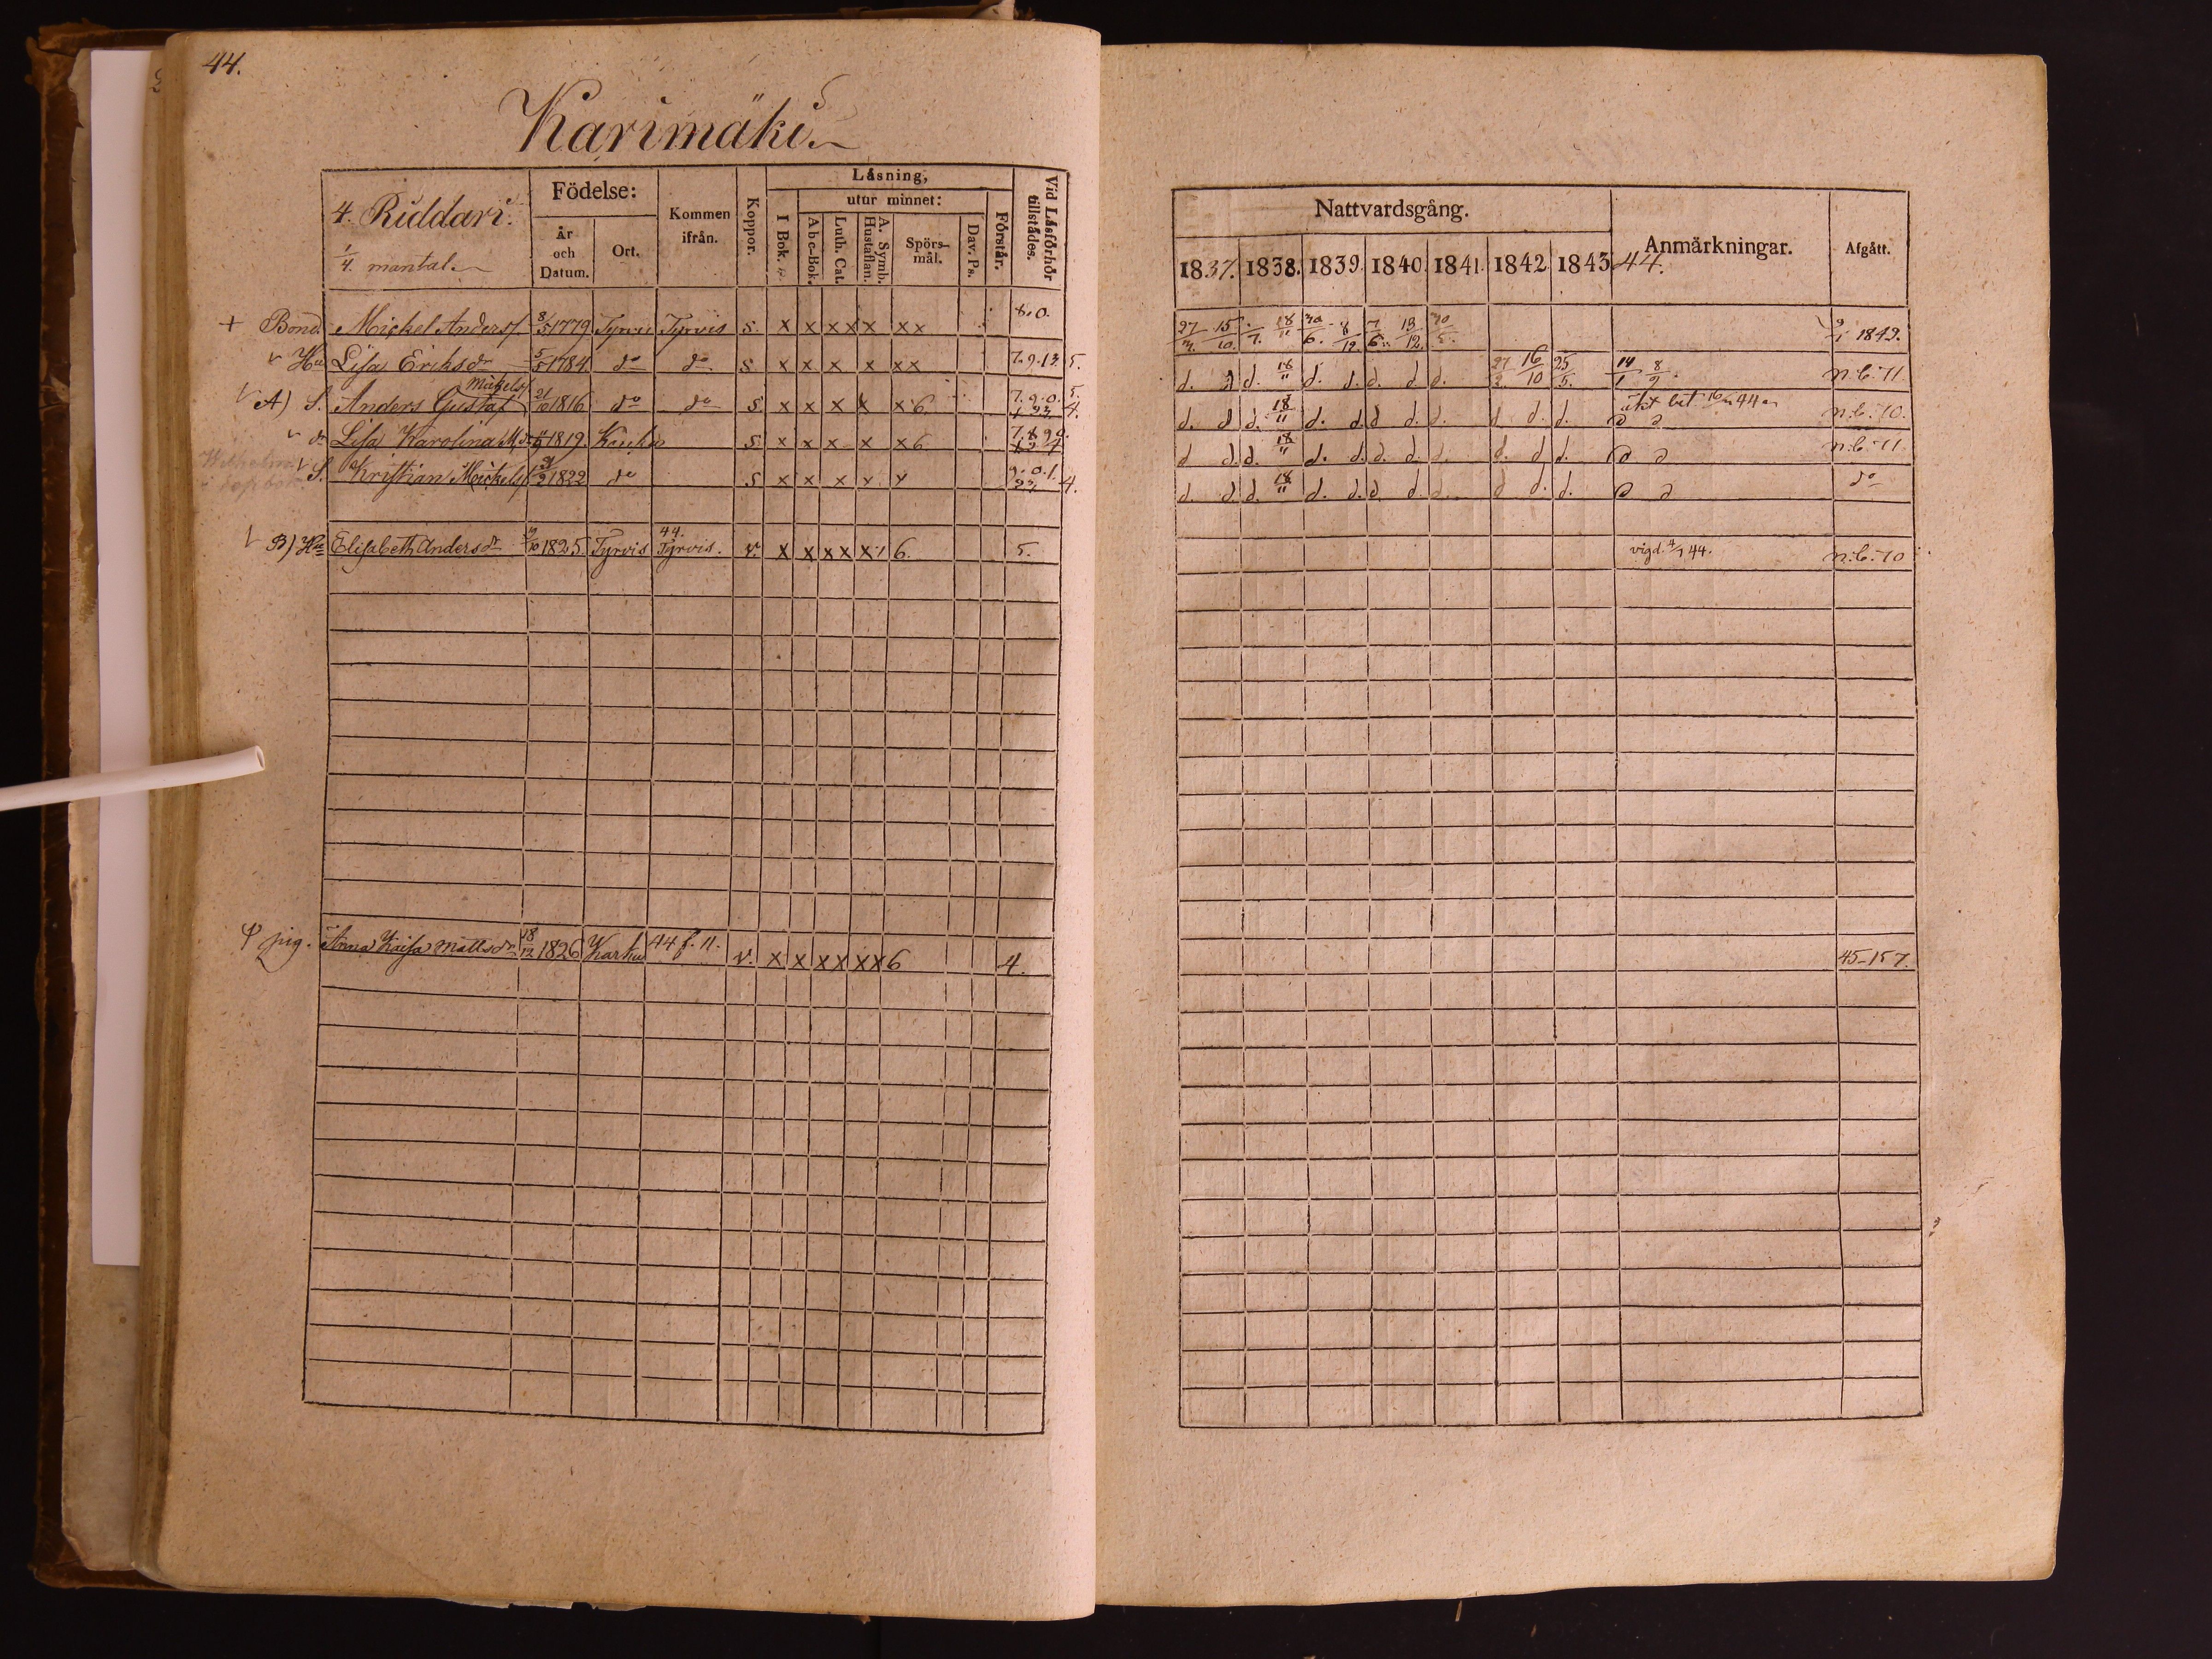 44.
Karimäki.
4. Riddari.
1/4. mantal.
Födelse:
År och Datum.
Ort.
Kommen ifrån.
Koppor.
Läsning,
I Bok.
utur minnet:
A b c-Bok.
Luth. Cat.
A. Symb. Hustaflan.
Spörsmål.
Dav. Ps.
Förstår.
Vid Läsförhör tillstädes.
Nattvardsgång.
1837. 1838. 1839. 1840. 1841. 1842 1843 44.
Anmärkningar.
Afgått.
+ Bond. Mickel Anders f. 8/5 1779 Tyrvis Tyrvis s. x x x x x x x 8.0. 27/3. 15/10. 18/11 30/6. 8/12 7/6. 13/12. 30/5. 9/1 1842.
Hu Lisa Eriksdr 5/5 1784 do do s x x x x x x 7.9.13 5. d. d d. 18/11 d. d. d. d. d. 27/3 16/10 25/5. 14/1 8/9. n.b. 11
A) S. Anders Gustaf Mickels f 21/10 1816 do do s x x x x x 6. 7.9.0. 5. 4. d. d d. 18/11 d. d. d d. d. d d. d. bet 16/ 44 n.b. 10.
dr Lisa Karolina M.dr 1819. s x x x x x 6 d d. d. 18/11 d. d. d. d. d. d. d d. n.b. 11
S. Kristian Mickels f 1822 do s x x x x x 9.0.1. 4. d. d. d. 18/11 d. d. d. d. d. d d. d. do
B) Hu Elisabeth Andersdr 1825. Tyrvis 44. Tyrvis. v. x x x x x 6. 5. vigd. 4/7 44. n.b. 10
pig. Anna Kaisa Mattsdr 18/12 1826 Karku 44 f. 11. v. x x x x x x 6 4. 45-157.